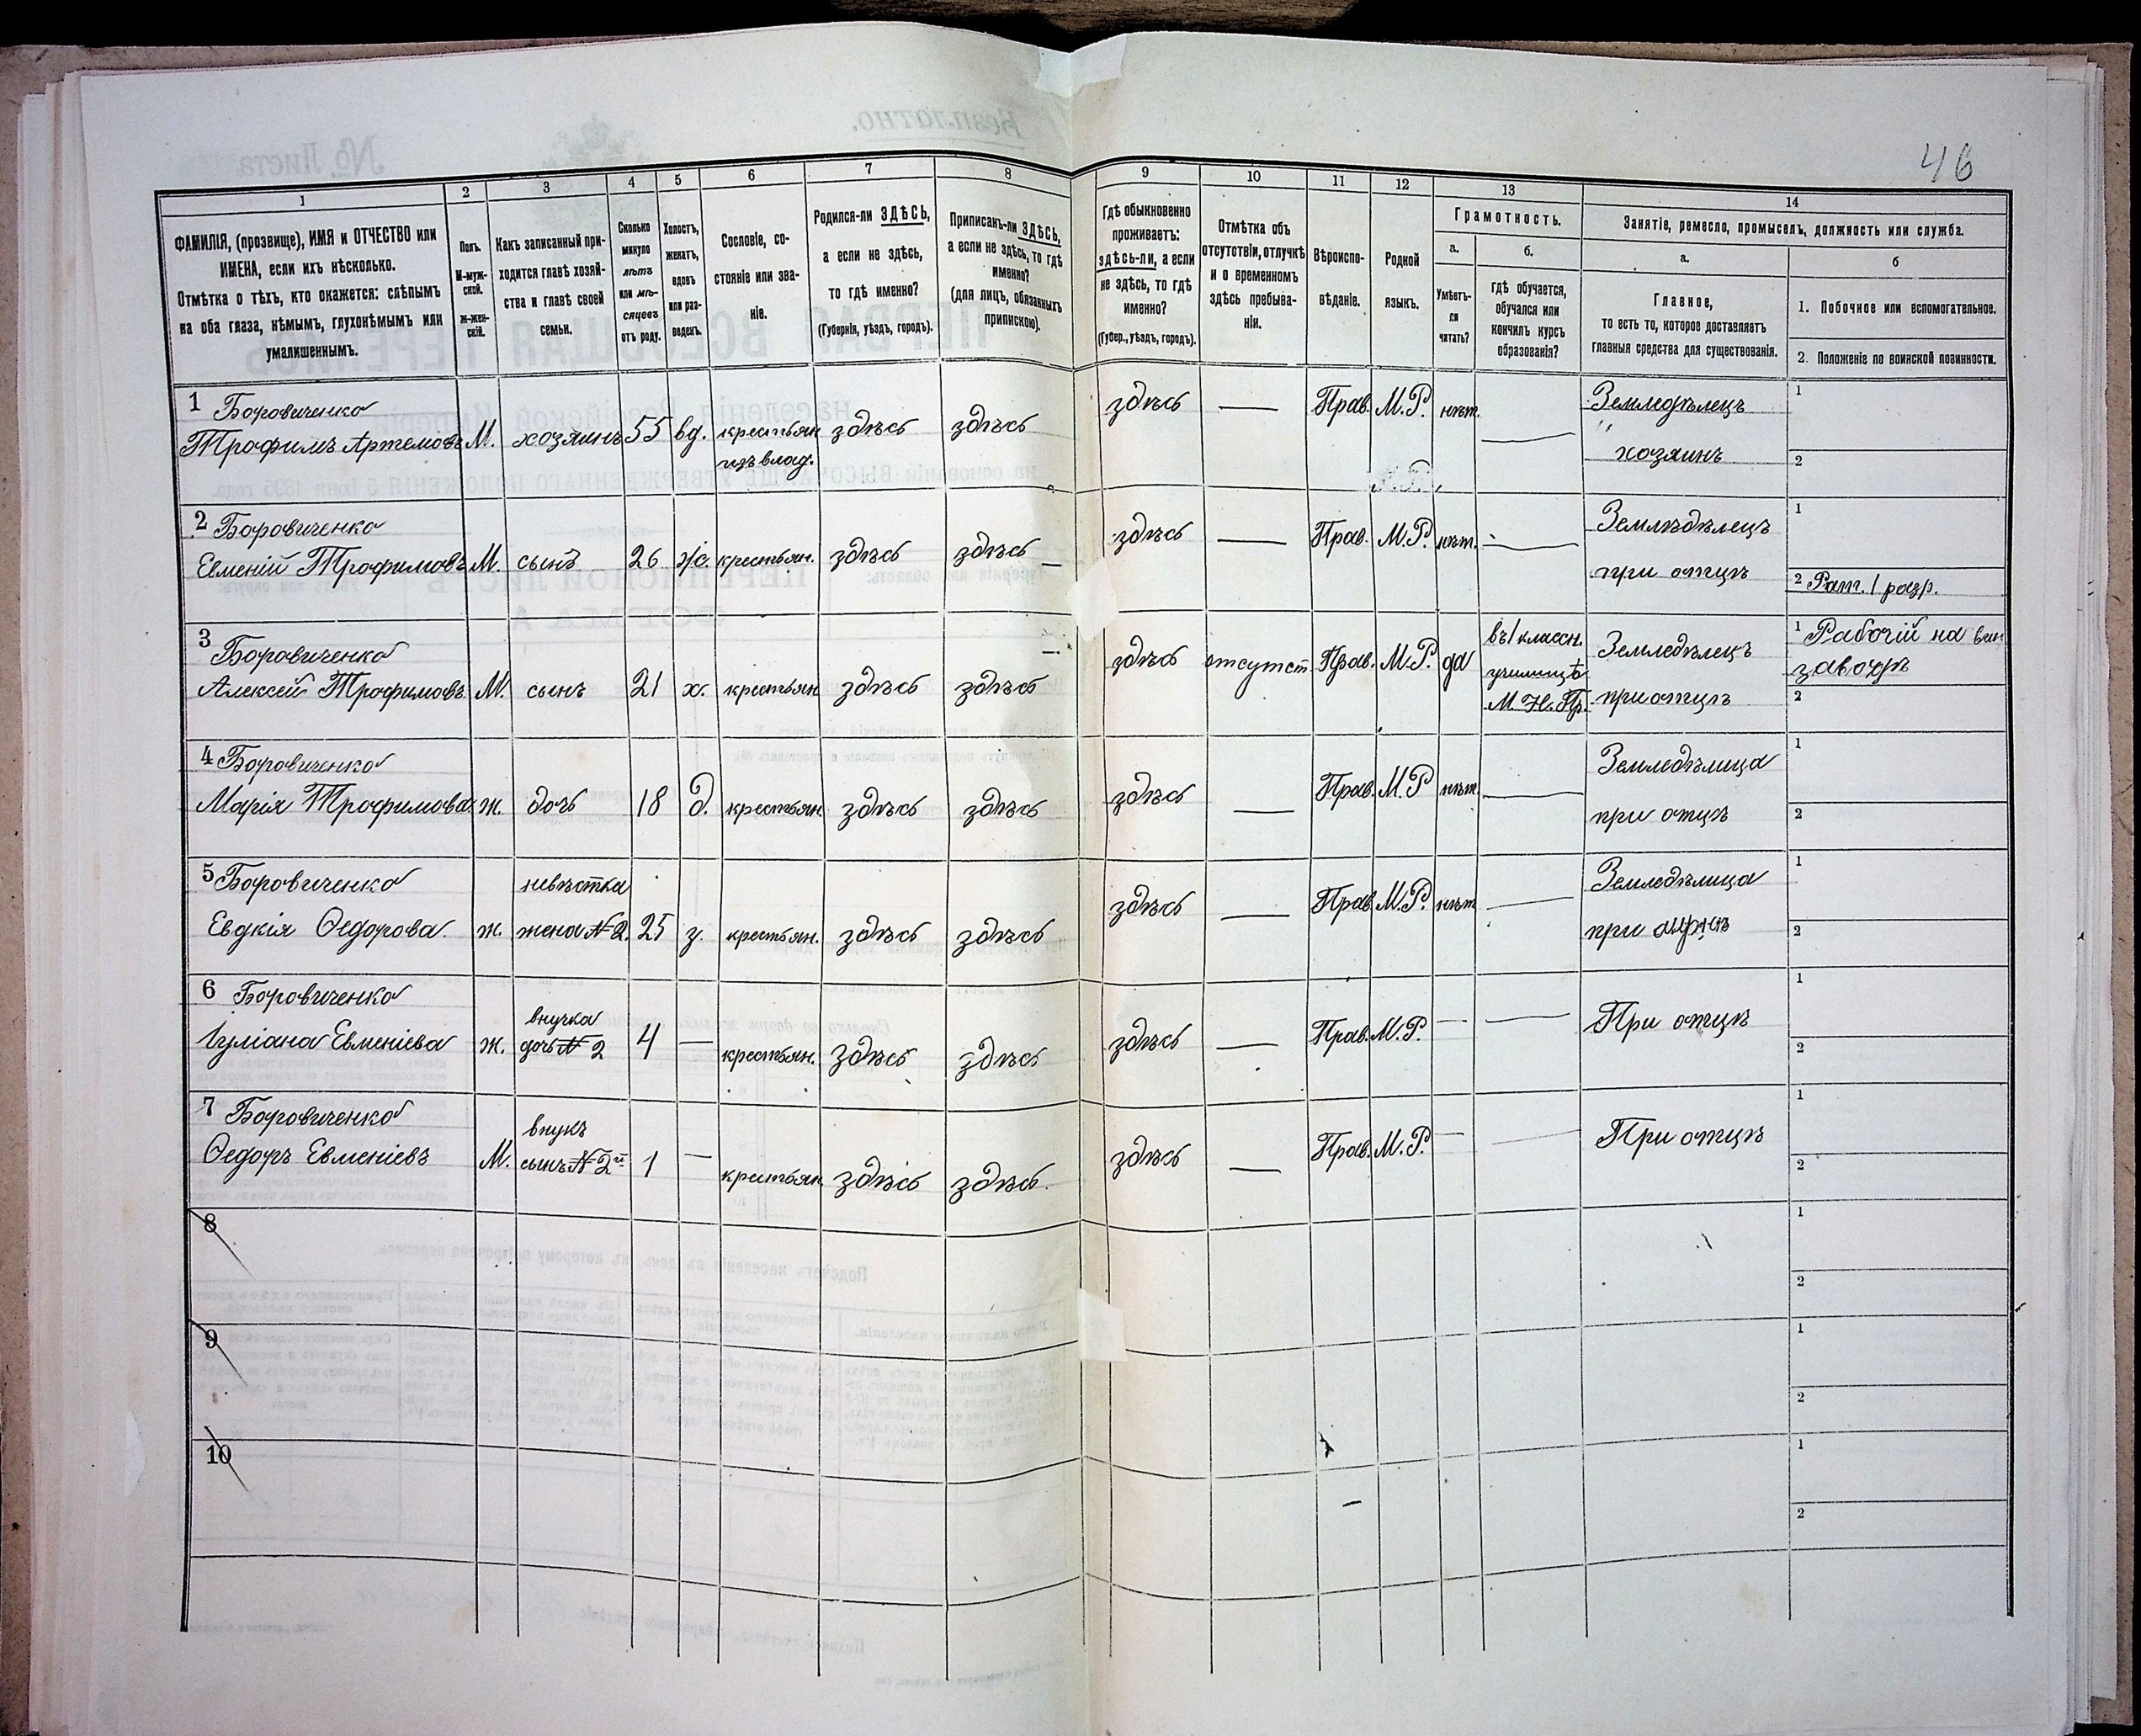 46
1 2 3 4 5 6 7 8 9 10 11 12 13 14
ФАМИЛІЯ, (прозвище), ИМЯ и ОТЧЕСТВО или
ИМЕНА, если ихъ нѣсколько.
Отмѣтка о тѣхъ, кто окажется: слѣпымъ
на оба глаза, нѣмымъ, глухонѣмымъ или
умалишеннымъ.
Полъ.
М-муж-
ской.
Ж-жен-
скій.
Какъ записанный при-
ходится главѣ хозяй-
ства и главѣ своей
семьи.
Сколько
минуло
лѣтъ
или мѣ-
сяцевъ
отъ роду.
Холостъ,
женатъ,
вдовъ
или раз-
веденъ.
Сословіе, со-
стояніе или зва-
ніе.
Родился-ли ЗДѢСЬ,
а если не здѣсь,
то гдѣ именно?
(Губернія, уѣздъ, городъ).
Приписанъ-ли ЗДѢСЬ,
а если не здѣсь, то гдѣ
именно?
(для лицъ, обязанныхъ
припискою).
Гдѣ обыкновенно
проживаетъ:
здѣсь-ли, а если
не здѣсь, то гдѣ
именно?
(Губер., уѣздъ, городъ).
Отмѣтка объ
отсутствіи, отлучкѣ
и о временномъ
здѣсь пребыва-
ніи.
Вѣроиспо-
вѣданіе.
Родной
языкъ.
Грамотность.
а.
Умѣетъ-
ли
читать?
б.
Гдѣ обучается,
обучался или
кончилъ курсъ
образованія?
Занятіе, ремесло, промыселъ, должность или служба.
а.
Главное,
то есть то, которое доставляетъ
главныя средства для существованія.
б
1. Побочное или вспомогательное.
2. Положеніе по воинской повинности.
1 Боровиченко
Трофимъ Артемовъ М. хозяинъ 55 вд. крестьян здѣсь здѣсь
изъ влад.
здѣсь — Прав. М.Р. нѣт. — Земледѣлецъ 1
хозяинъ 2
2 Боровиченко
Евменій Трофимовъ М. сынъ 26 ж. крестьян. здѣсь здѣсь
здѣсь — Прав. М.Р. нѣт. — Земледѣлецъ 1
при отцѣ 2 Рат. 1 разр.
3 Боровиченко
Алексей Трофимовъ М. сынъ 21 х. крестьян здѣсь здѣсь
здѣсь отсутст. Прав. М.Р. да
въ 1 классн.
училищѣ
М. Н. Пр.
Земледѣлецъ
при отцѣ
1 Рабочій на вин
заводѣ
2
4 Боровиченко
Марія Трофимова ж. дочь 18 д. крестьян. здѣсь здѣсь
здѣсь — Прав. М.Р нѣт. — Земледѣлица 1
при отцѣ 2
5 Боровиченко невѣстка
Евдкія Ѳедорова. ж. жена № 2. 25 з. крестьян. здѣсь здѣсь
здѣсь — Прав М.Р. нѣт — Земледѣлица 1
при 2
6 Боровиченко внучка
Іуліана Евменіева ж. дочь № 2 4 — крестьян. здѣсь здѣсь
здѣсь — Прав. М.Р. — — При отцѣ 1
2
7 Боровиченко внукъ
Ѳедоръ Евменіевъ М. сынъ № 2 1 — крестьян. здѣсь здѣсь.
здѣсь — Прав. М.Р. — — При отцѣ 1
2
8 1
2
9 1
2
10 1
2